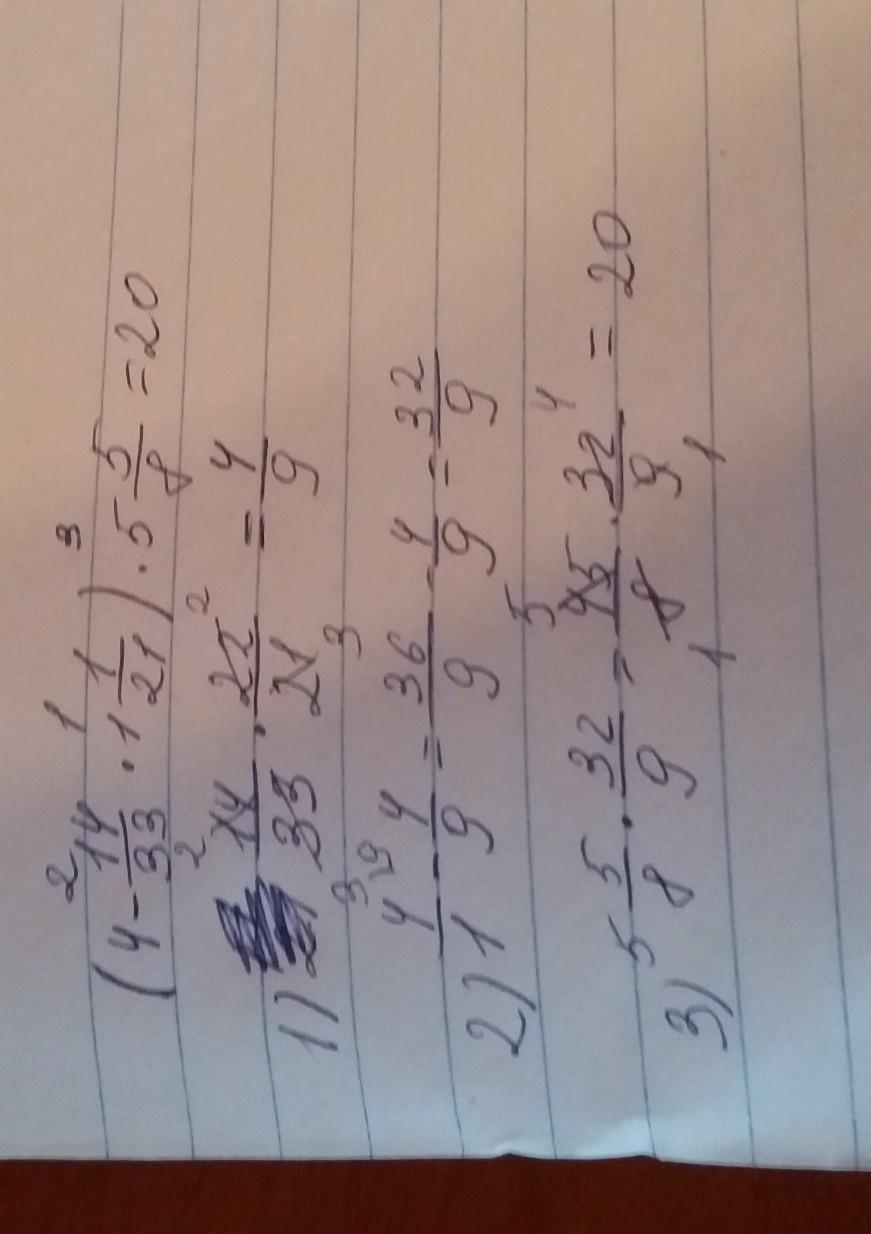 2 1 3
(4 - 14/33 · 1 1/21) · 5 5/8 = 20
1) 2 14/33 · 22/21 2 3 = 4/9
2) 4/1 3 9 - 4/9 = 36/9 - 4/9 = 32/9
3) 5 5/8 · 32/9 = 5 45/8 1 · 32/9 4 1 = 20